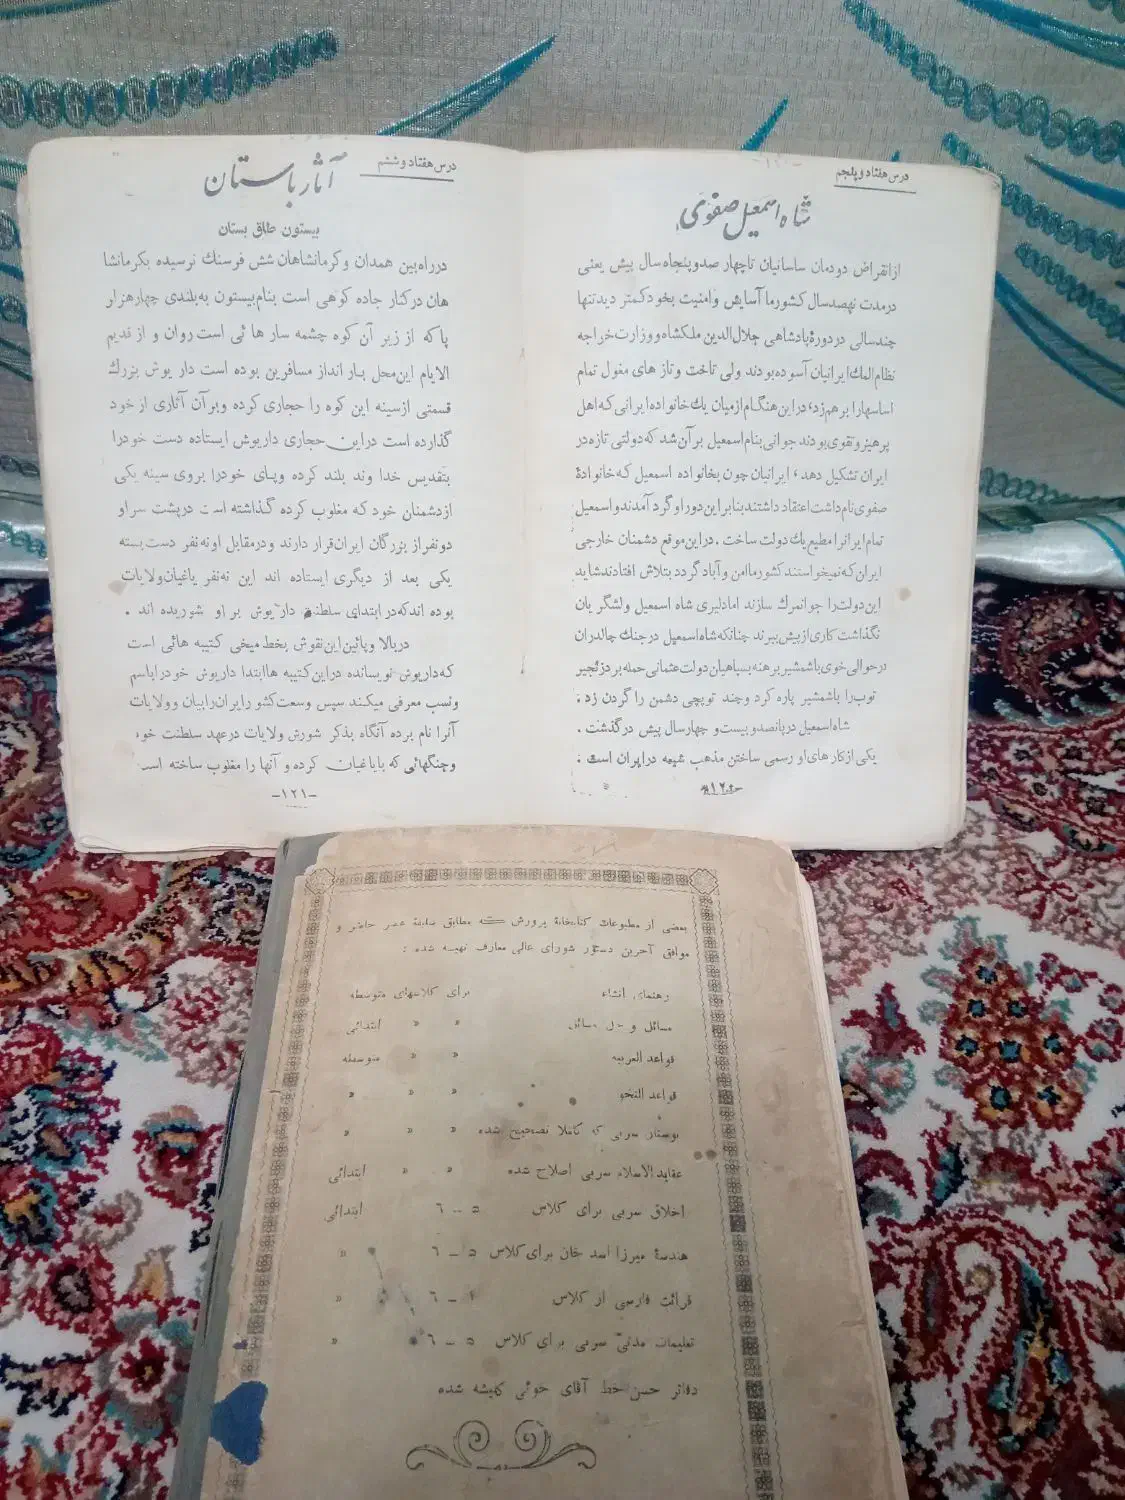 درس هفتاد و پنجم
شاه اسمعیل صفوی
از انقراض دودمان ساسانیان تا چهار صد و پنجاه سال پیش یعنی
در مدت نهصد سال کشور ما آسایش و امنیت بخود کمتر دید تنها
چند سالی در دورهٔ پادشاهی جلال‌الدین ملکشاه و وزارت خواجه
نظام الملك ایرانیان آسوده بودند ولی تاخت و تاز های مغول تمام
اساسها را برهم زد، در این هنگام از میان یك خانواده ایرانی که اهل
پرهیز و تقوی بودند جوانی بنام اسمعیل بر آن شد که دولتی تازه در
ایران تشکیل دهد، ایرانیان چون بخانواده اسمعیل که خانوادهٔ
صفوی نام داشت اعتقاد داشتند بنابر این دور او گرد آمدند و اسمعیل
تمام ایرانرا مطیع یك دولت ساخت. در این موقع دشمنان خارجی
ایران که نمیخواستند کشور ما امن و آباد گردد بتلاش افتادند شاید
این دولت را جوانمرك سازند اما دلیری شاه اسمعیل و لشگر یان
نگذاشت کاری از پیش ببرند چنانکه شاه اسمعیل در جنك چالدران
در حوالی خوی با شمشیر برهنه بسپاهیان دولت عثمانی حمله برد زنجیر
توپ را با شمشیر پاره کرد و چند توپچی دشمن را گردن زد.
شاه اسمعیل در پانصد و بیست و چهار سال پیش در گذشت.
یکی از کار های او رسمی ساختن مذهب شیعه در ایران است.
-۱۲۰-
درس هفتاد و ششم
آثار باستان
بیستون طاق بستان
در راه بین همدان و کرمانشاهان شش فرسنك نرسیده بکرمانشا
هان در کنار جاده کوهی است بنام بیستون به بلندی چهار هزار
پا که از زیر آن کوه چشمه سار هائی است روان و از قدیم
الایام این محل بار انداز مسافرین بوده است داریوش بزرك
قسمتی از سینه این کوه را حجاری کرده و بر آن آثاری از خود
گذارده است در این حجاری داریوش ایستاده دست خود را
بتقدیس خدا وند بلند کرده و پای خود را بروی سینه یکی
از دشمنان خود که مغلوب کرده گذاشته است در پشت سر او
دو نفر از بزرگان ایران قرار دارند و در مقابل او نه نفر دست بسته
یکی بعد از دیگری ایستاده اند این نه نفر یاغیان ولایات
بوده اند که در ابتدای سلطنت داریوش بر او شوریده اند.
در بالا و پائین این نقوش بخط میخی کتیبه هائی است
که داریوش نویسانده در این کتیبه ها ابتدا داریوش خود را باسم
و نسب معرفی میکند سپس وسعت کشور ایران را بیان و ولایات
آنرا نام برده آنگاه بذکر شورش ولایات در عهد سلطنت خود
و جنگهائی که با یاغیان کرده و آنها را مغلوب ساخته است
-۱۲۱-
بعضی از مطبوعات کتابخانهٔ پرورش که مطابق سلیقهٔ عصر حاضر و
موافق آخرین دستور شورای عالی معارف تهیه شده:
رهنمای انشاء برای کلاسهای متوسطه
مسائل و حل مسائل « « ابتدائی
قواعد العربیه « « متوسطه
قواعد النحو « « «
بوستان سربی که کاملا تصحیح شده « « «
عقاید الاسلام سربی اصلاح شده « « ابتدائی
اخلاق سربی برای کلاس ۵ - ٦ ابتدائی
هندسهٔ میرزا اسد خان برای کلاس ۵ - ٦ «
قرائت فارسی از کلاس ۱ - ٦ «
تعلیمات مدنی سربی برای کلاس ۵ - ٦ «
دفاتر حسن خط آقای خوئی کلیشه شده